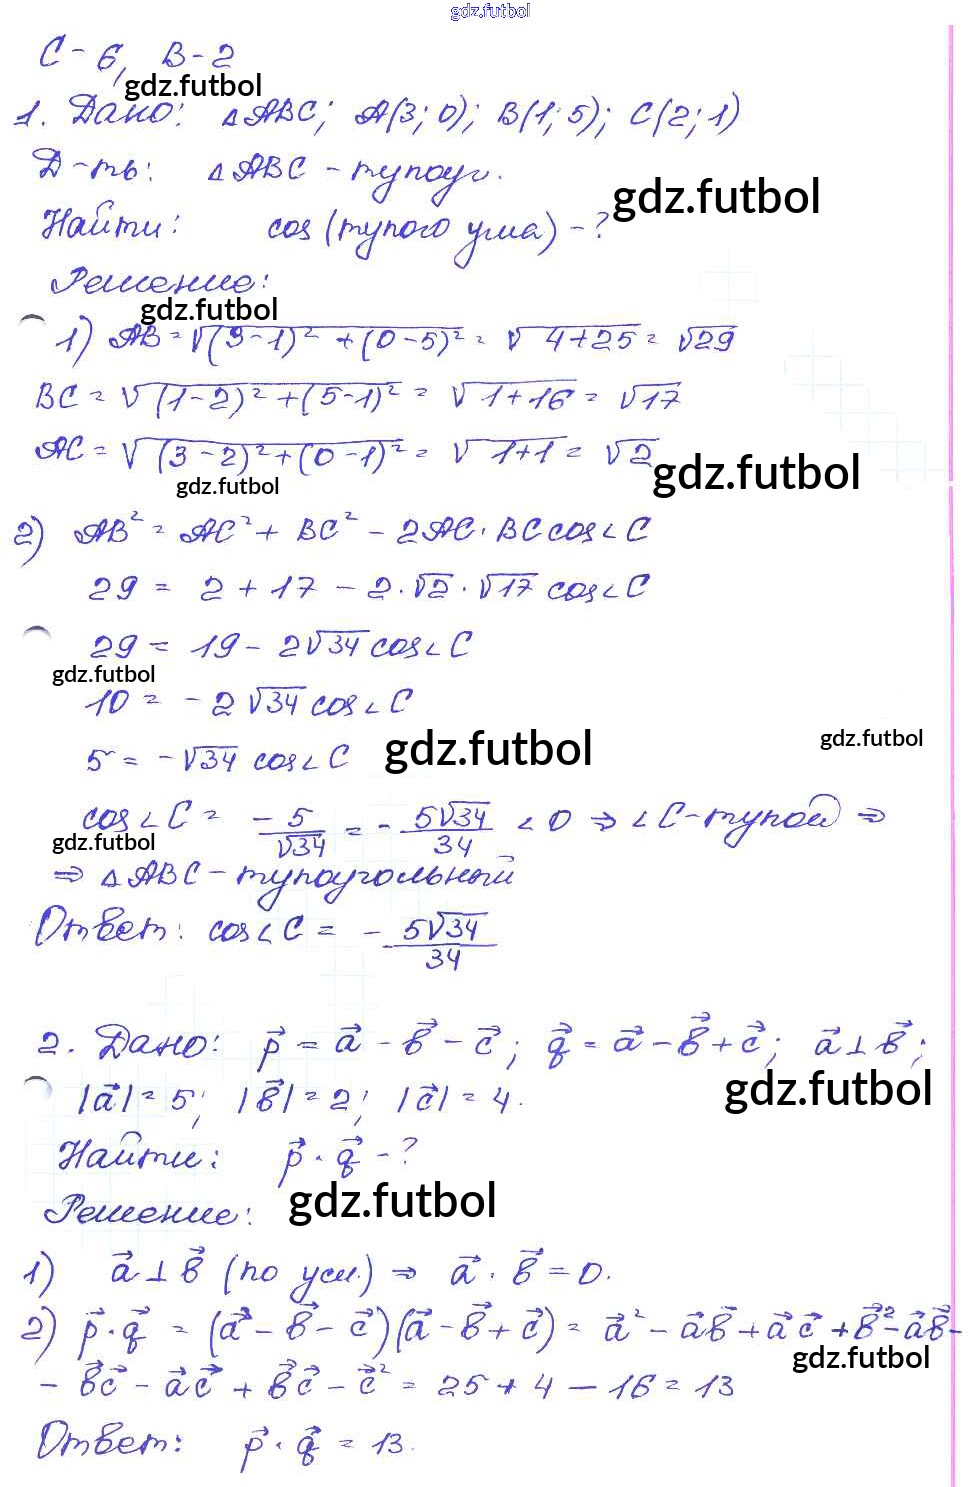 gdz.futbol
С-6, В-2
gdz.futbol
1. Дано: △ABC; A(3; 0); B(1; 5); C(2; 1)
Д-ть: △ABC - тупоуг.
gdz.futbol
Найти: cos (тупого угла) - ?
Решение:
gdz.futbol
1) AB = √((3-1)² + (0-5)²) = √(4+25) = √29
BC = √((1-2)² + (5-1)²) = √(1+16) = √17
AC = √((3-2)² + (0-1)²) = √(1+1) = √2
gdz.futbol
gdz.futbol
2) AB² = AC² + BC² - 2AC · BC cos∠C
29 = 2 + 17 - 2 · √2 · √17 cos∠C
29 = 19 - 2√34 cos∠C
gdz.futbol
10 = - 2√34 cos∠C
5 = -√34 cos∠C
gdz.futbol
gdz.futbol
cos∠C = -5/√34 = - 5√34/34 < 0 ⇒ ∠C - тупой ⇒
gdz.futbol
⇒ △ABC - тупоугольный
Ответ: cos∠C = - 5√34/34
2. Дано: p⃗ = a⃗ - b⃗ - c⃗; q⃗ = a⃗ - b⃗ + c⃗; a⃗ ⊥ b⃗;
gdz.futbol
|a⃗| = 5; |b⃗| = 2; |c⃗| = 4.
Найти: p⃗ · q⃗ - ?
Решение:
gdz.futbol
1) a⃗ ⊥ b⃗ (по усл.) ⇒ a⃗ · b⃗ = 0.
2) p⃗ · q⃗ = (a⃗ - b⃗ - c⃗)(a⃗ - b⃗ + c⃗) = a⃗² - a⃗b⃗ + a⃗c⃗ + b⃗² - a⃗b⃗ -
gdz.futbol
- b⃗c⃗ - a⃗c⃗ + b⃗c⃗ - c⃗² = 25 + 4 - 16 = 13
Ответ: p⃗ · q⃗ = 13.